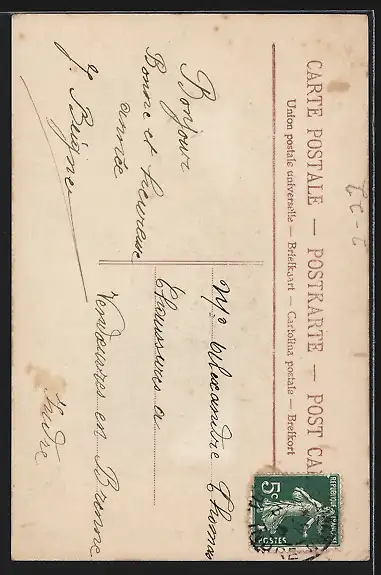 CARTE POSTALE — POSTKARTE — POST CA
Union postale universelle — Briefkaart — Cartolina postale — Brefkort
Bonjour
Bonne et heureuse
année
J. Beigne
Mr Alexandre Thomas
Chaussures a
Vendœuvres en Brenne
Indre
REPUBLIQUE FRANÇAISE
5c
POSTES